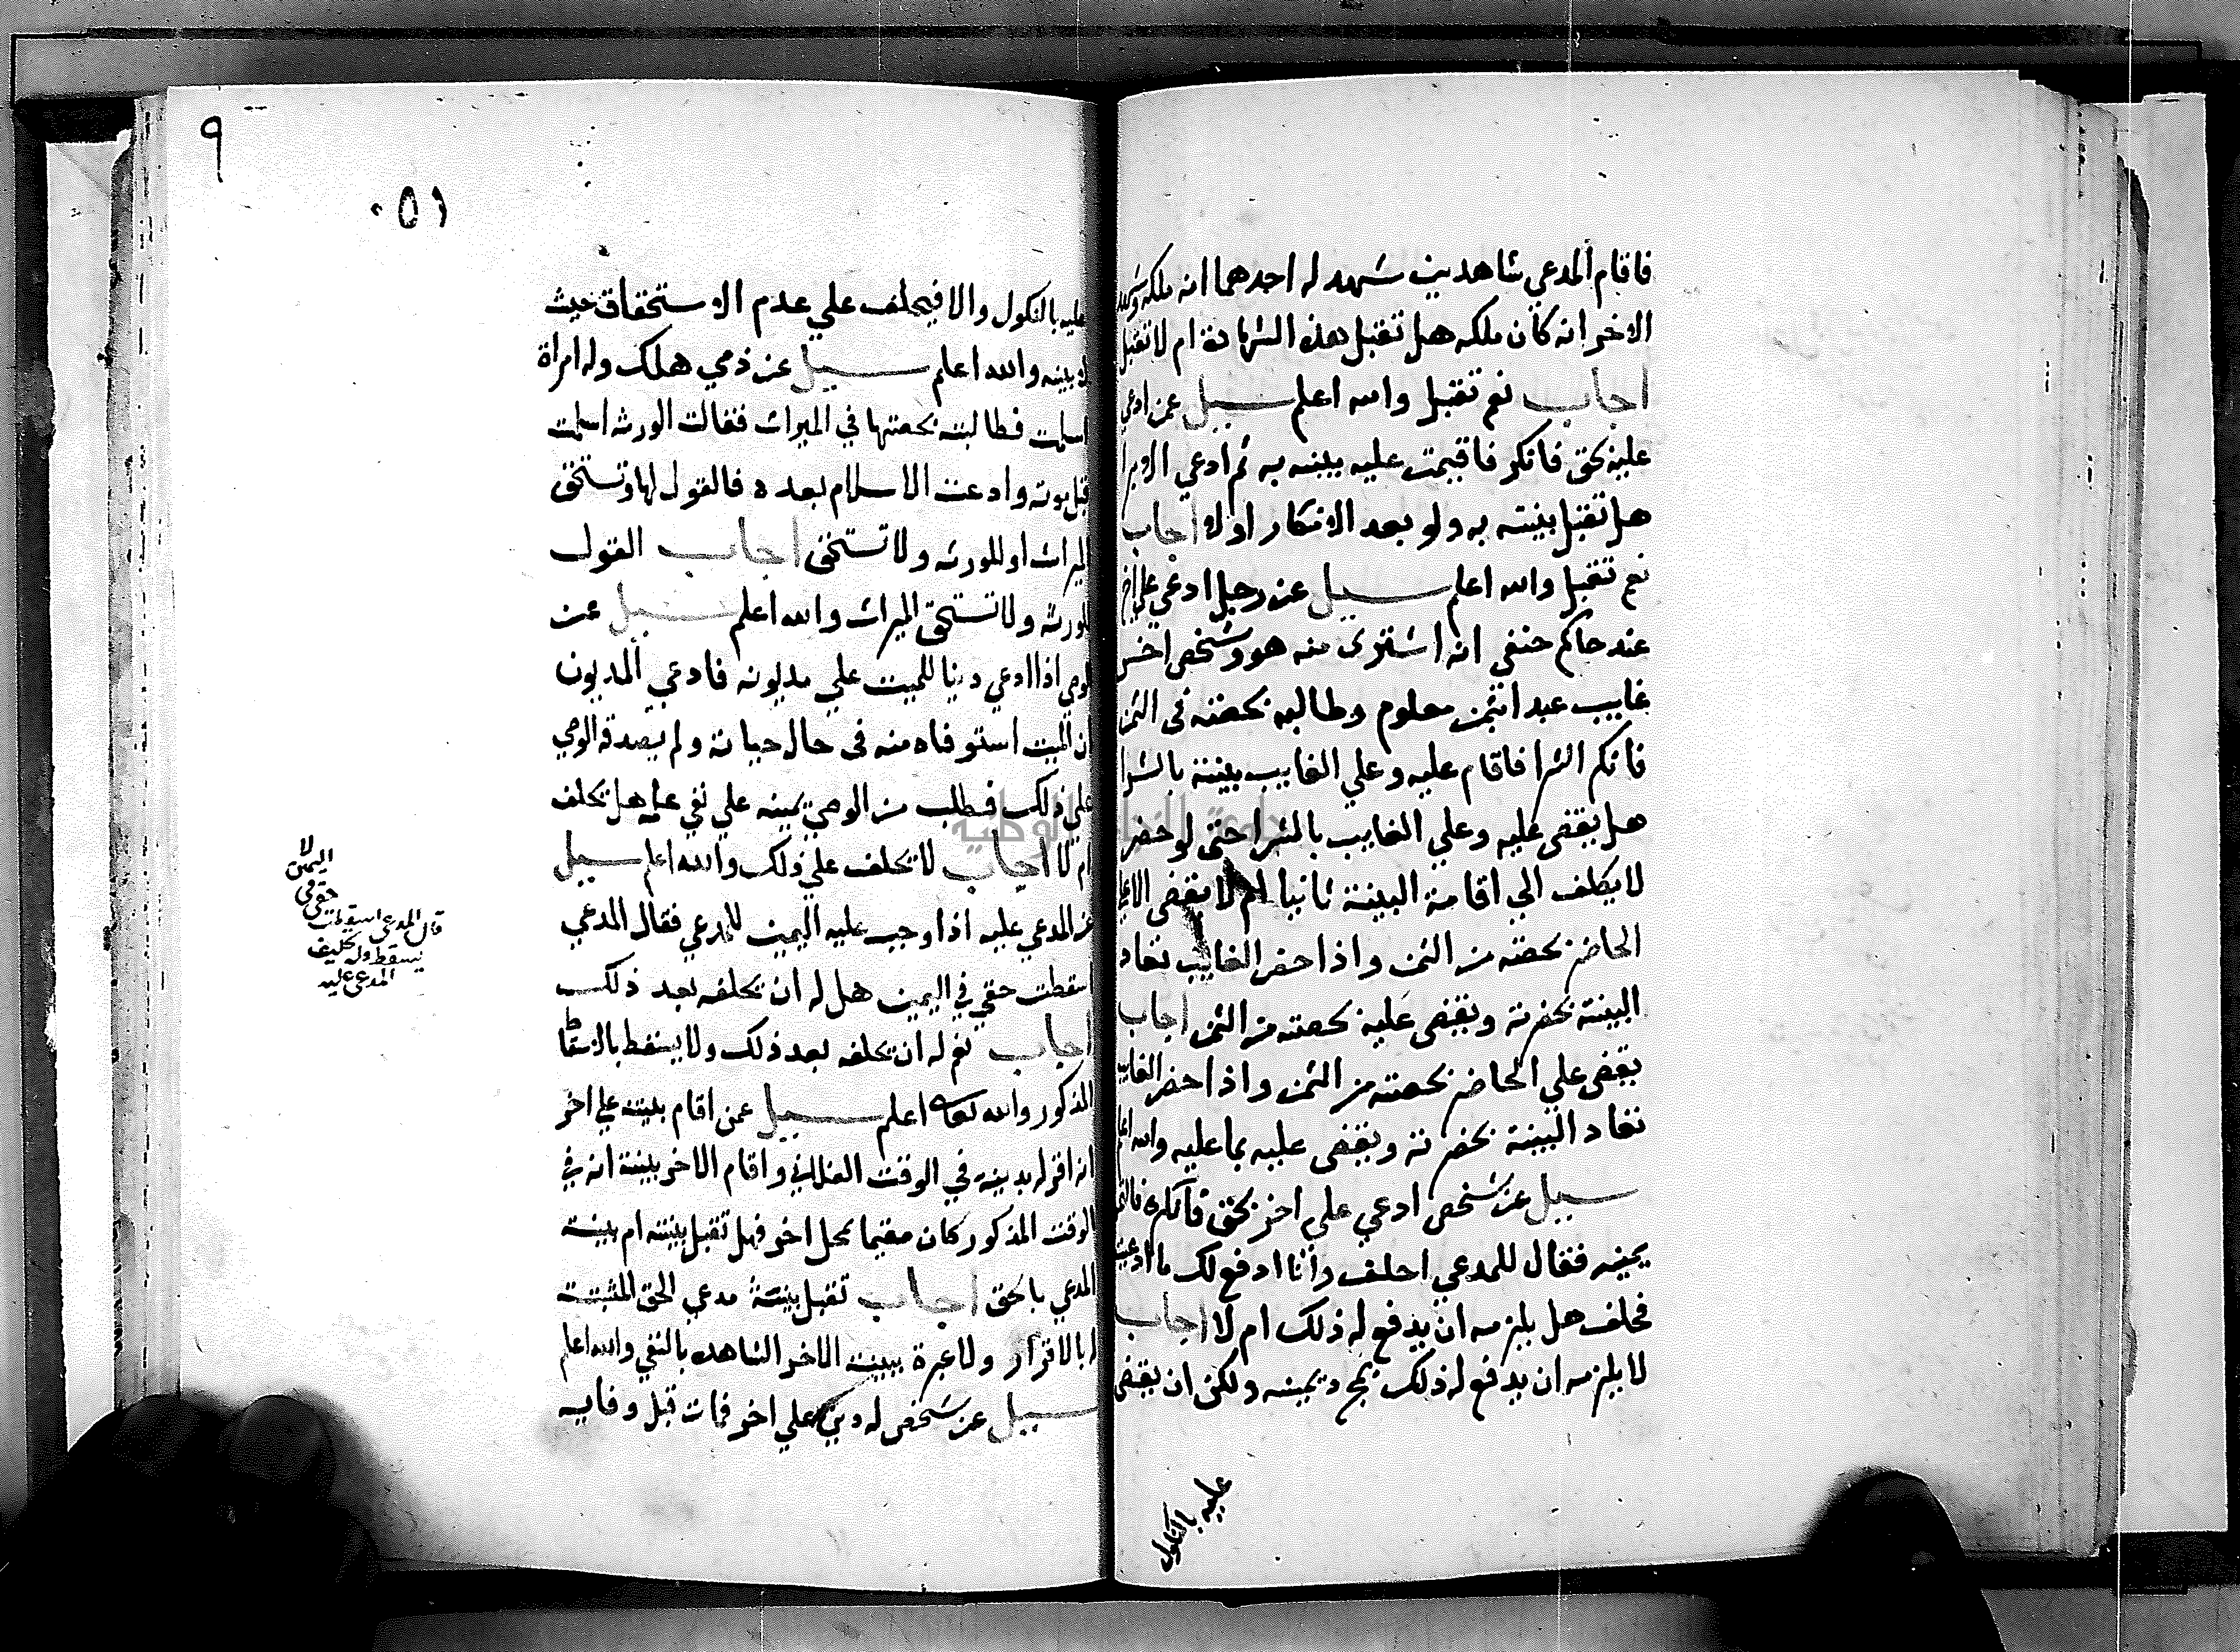 فاقام المدعي شاهدين شهد له احدهما انه ملكه وشهد
الاخر انه كان ملكه هل تقبل هذه الشهادة ام لا تقبل
اجاب نعم تقبل والله اعلم سيل عمن ادعي
عليه بحق فانكر فاقيمت عليه بينه به ثم ادعي الابرا
هل تقبل بينته به ولو بعد الانكار او لا اجاب
نعم تقبل والله اعلم سيل عن رجل ادعي علي اخر
عند حاكم حنفي انه اشترى منه هو وشخص اخر
غايب عبدا بثمن معلوم وطالبه بحصته في الثمن
فانكر الشرا فاقام عليه وعلي الغايب بينة بالشرا
هل يقضى عليه وعلي الغايب بالشرا حتى لو حضر
لا يكلف الي اقامة البينة ثانيا ام لا يقضى الا علي
الحاضر بحصته من الثمن واذا حضر الغايب تعاد
البينة بحضرته ويقضى عليه بحصته من الثمن اجاب
يقضى علي الحاضر بحصته من الثمن واذا حضر الغايب
تعاد البينة بحضرته ويقضى عليه بما عليه والله اعلم
سيل عن شخص ادعي علي اخر بحق فانكره
يمينه فقال للمدعي احلف وانا ادفع لك ما ادعيت
فحلف هل يلزمه ان يدفع له ذلك ام لا اجاب
لا يلزمه ان يدفع له ذلك بمجرد يمينه ولكن ان يقضى
عليه بالنكول
٩
٠٥١
عليه بالنكول والا فيحلف علي عدم الاستحقاق حيث
لا بينه والله اعلم سيل عن ذمي هلك وله امراة
اسلمت فطالبت بحصتها في الميراث فقالت الورثه اسلمت
قبل موته وادعت الاسلام بعده فالقول لها وتستحق
الميراث او للورثه ولا تستحق اجاب القول
للورثه ولا تستحق الميراث والله اعلم سيل عن
الوصي اذا ادعي دينا للميت علي مديونه فادعي المديون
ان الميت استوفاه منه في حال حياته ولم يصدقه الوصي
علي ذلك فطلب من الوصي يمينه علي نفي علمه هل يحلف
ام لا اجاب لا يحلف علي ذلك والله اعلم سيل
عن المدعي عليه اذا وجب عليه اليمين للمدعي فقال المدعي
اسقطت حقي في اليمين هل له ان يحلفه بعد ذلك
اجاب نعم له ان يحلفه بعد ذلك ولا يسقط بالاسقاط
المذكور والله تعالى اعلم سيل عمن اقام بينته علي اخر
انه اقر له بدينه في الوقت الفلاني واقام الاخر بينة انه في
الوقت المذكور كان مقيما بمحل اخر فهل تقبل بينته ام بينة
المدعي بالحق اجاب تقبل بينة مدعي الحق المثبتة
له بالاقرار ولا عبرة ببينة الاخر الشاهده بالنفي والله اعلم
سيل عن شخص له دين علي اخر فمات قبل وفايه
قال المدعي اسقطت
حقي في
اليمين
لا
يسقط وله تحليف
المدعى عليه